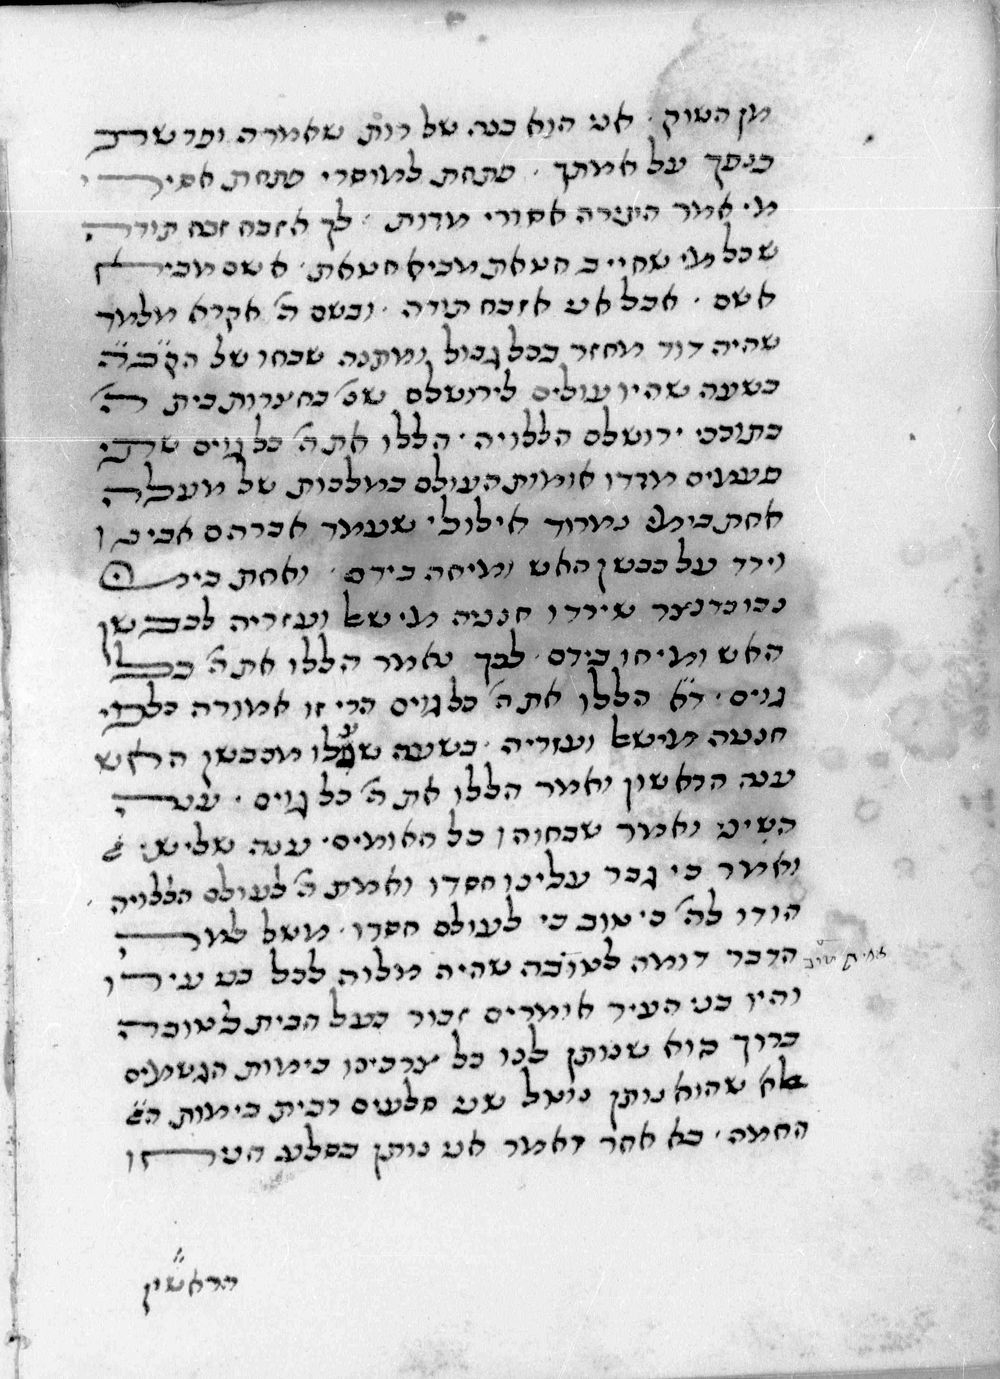 מן השוק · אני הוא בנה של רות שאמרה ופרשת
כנפך על אמתך · פתחת למוסרי פתחת אסירי
מי אמר היצירה אסורי מדות · לך אזבח זבח תודה
שכל מי שחייב חטאת מביא חטאת · אשם מביא
אשם · אבל אני אזבח תודה · ובשם ה' אקרא מלמד
שהיה דוד מחזר בכל גבול ומתנה שבחו של הקב"ה
בשעה שהיו עולים לירושלם שנ' בחצרות בית ה'
בתוככי ירושלם הללויה · הללו את ה' כל גוים שתי
פעמים מרדו אומות העולם במלכות של מעלה
אחת בימי נמרוד אילולי שעמד אברהם אבינו
וירד על כבשן האש ומיחה בידם · ואחת בימי
נבוכדנצר שירדו חנניה מישאל ועזריה לכבשן
האש ומיחו בידם · לכך נאמר הללו את ה' כל
גוים · ד"א הללו את ה' כל גוים הרי זו אמורה כלפי
חנניה מישאל ועזריה · בשעה שעלו מכבשן האש
ענה הראשון ואמר הללו את ה' כל גוים · ענה
השיני ואמר שבחוהו כל האומים · ענה שלישי
ואמר כי גבר עלינו חסדו ואמת ה' לעולם הללויה
הודו לה' כי טוב כי לעולם חסדו · משל למה
הדבר דומה לטובה שהיה מלוה לכל בני עירו
והיו בני העיר אומרים זכור בעל הבית לטובה
ברוך הוא שנותן לנו כל צרכינו בימות הגשמים
אלא שהוא נותן ונוטל שני סלעים רבית בימות הח
החמה · בא אחר ואמר אני נותן בסלע העירו
הראשון